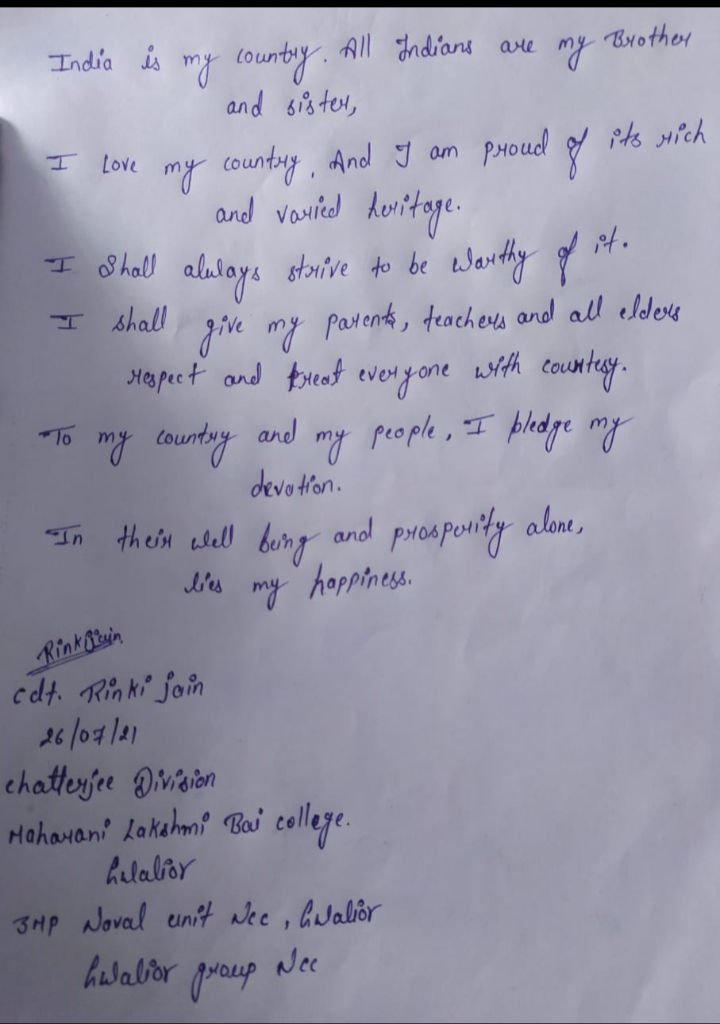 India is my country. All Indians are my Brother
and sister,
I Love my country, And I am proud of its rich
and varied heritage.
I Shall always strive to be Worthy of it.
I shall give my parents, teachers and all elders
respect and treat everyone with courtesy.
To my country and my people, I pledge my
devotion.
In their well being and prosperity alone,
lies my happiness.
Rinkijain
cdt. Rinki jain
26/07/21
chatterjee Division
Maharani Lakshmi Bai college.
Gwalior
3MP Naval unit Ncc, Gwalior
Gwalior group Ncc